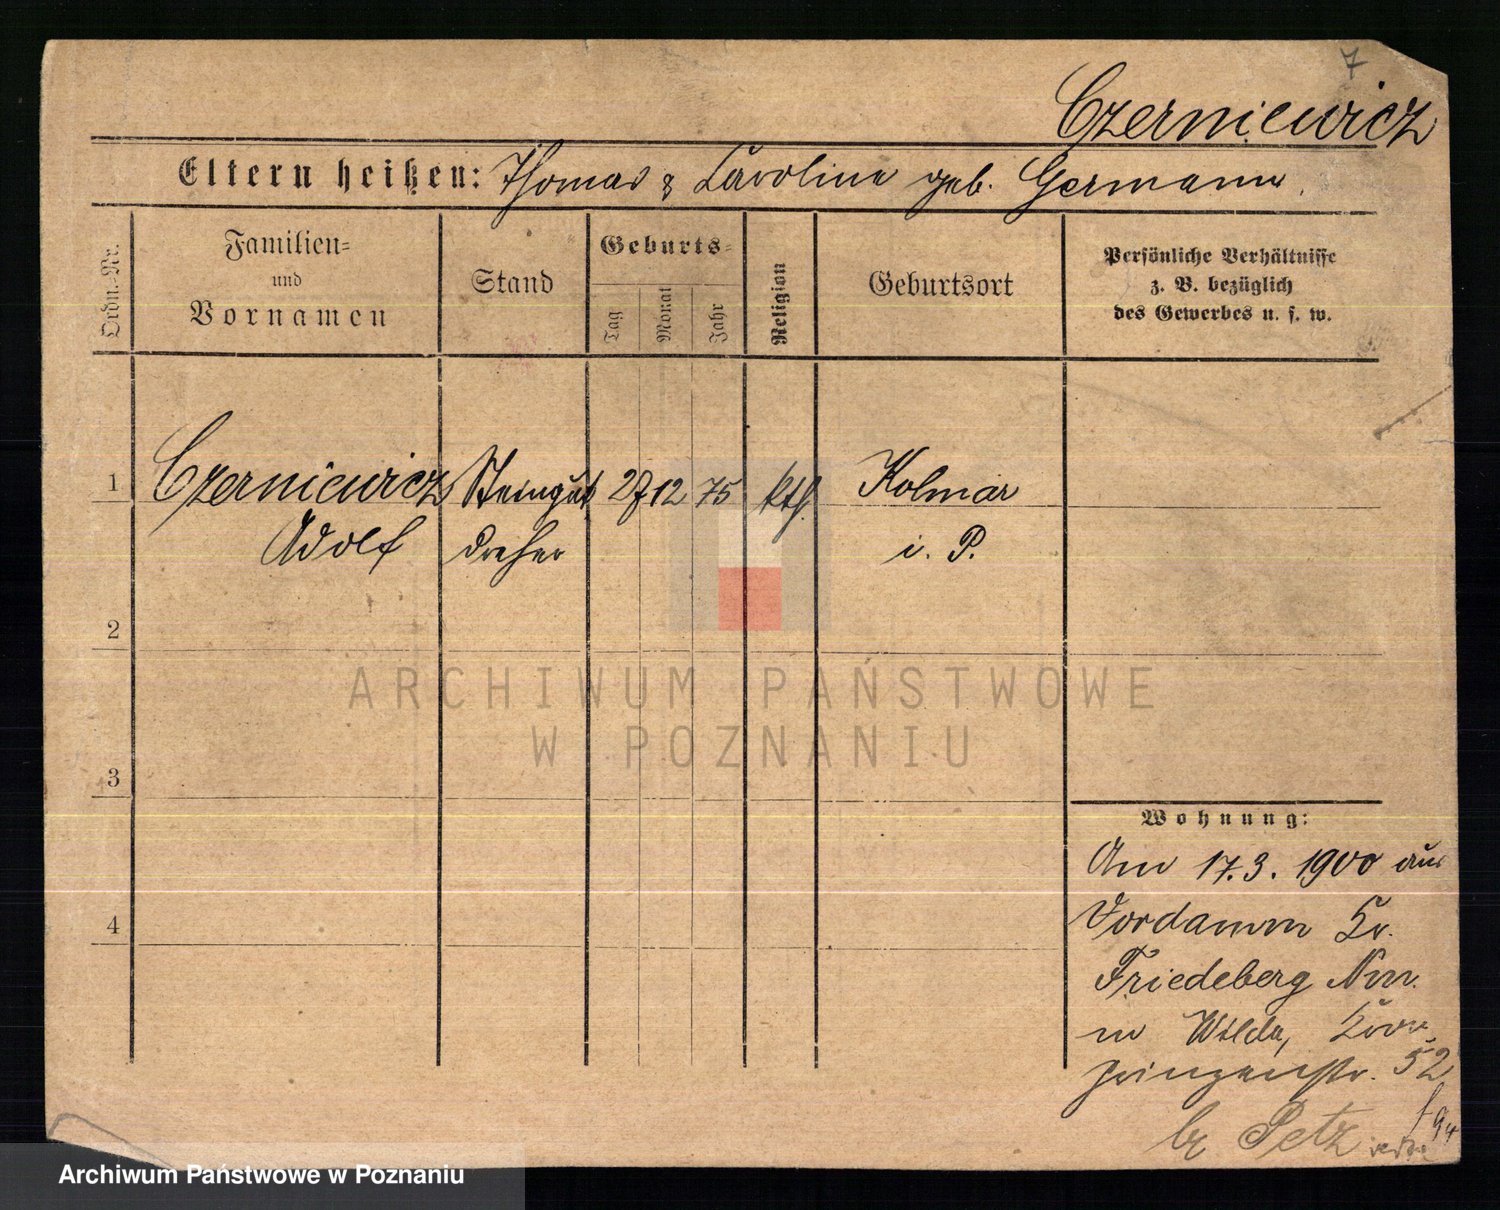 7
Czerniewicz
Eltern heißen: Thomas & Caroline geb. Germann.
Ordn.-Nr.
Familien-
und
Vornamen
Stand
Geburts-
Tag
Monat
Jahr
Religion
Geburtsort
Persönliche Verhältnisse
z. B. bezüglich
des Gewerbes u. s. w.
1
Czerniewicz Steingut 27 12 75 kth. Kolmar
Adolf dreher i. P.
2
3
4
Wohnung:
Am 17.3.1900 aus
Vordamm Kr.
Friedeberg Nm.
in Wilda, Kron
prinzenstr. 52
bz Petz
ARCHIWUM PAŃSTWOWE
W POZNANIU
Archiwum Państwowe w Poznaniu